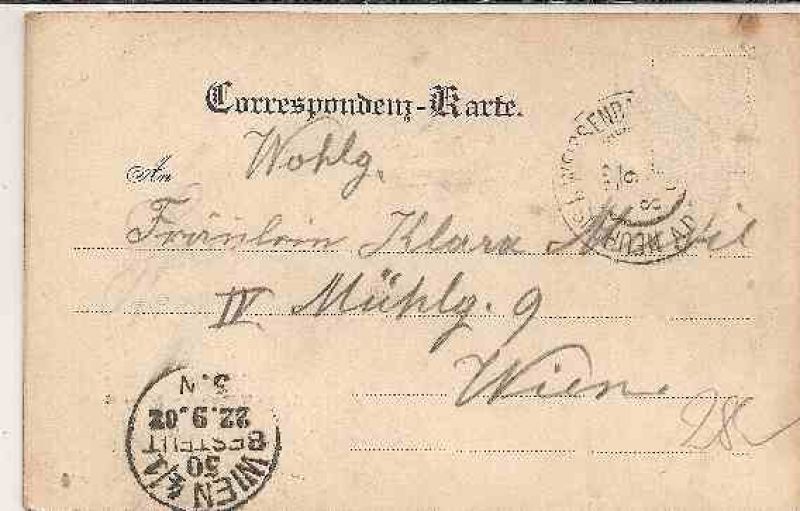 Correspondenz-Karte.
An Wohlg.
Fräulein Klara
IV Mühlg. 9
Wien
28
WIEN 4/1
50
BESTELLT
22.9.02
3.N